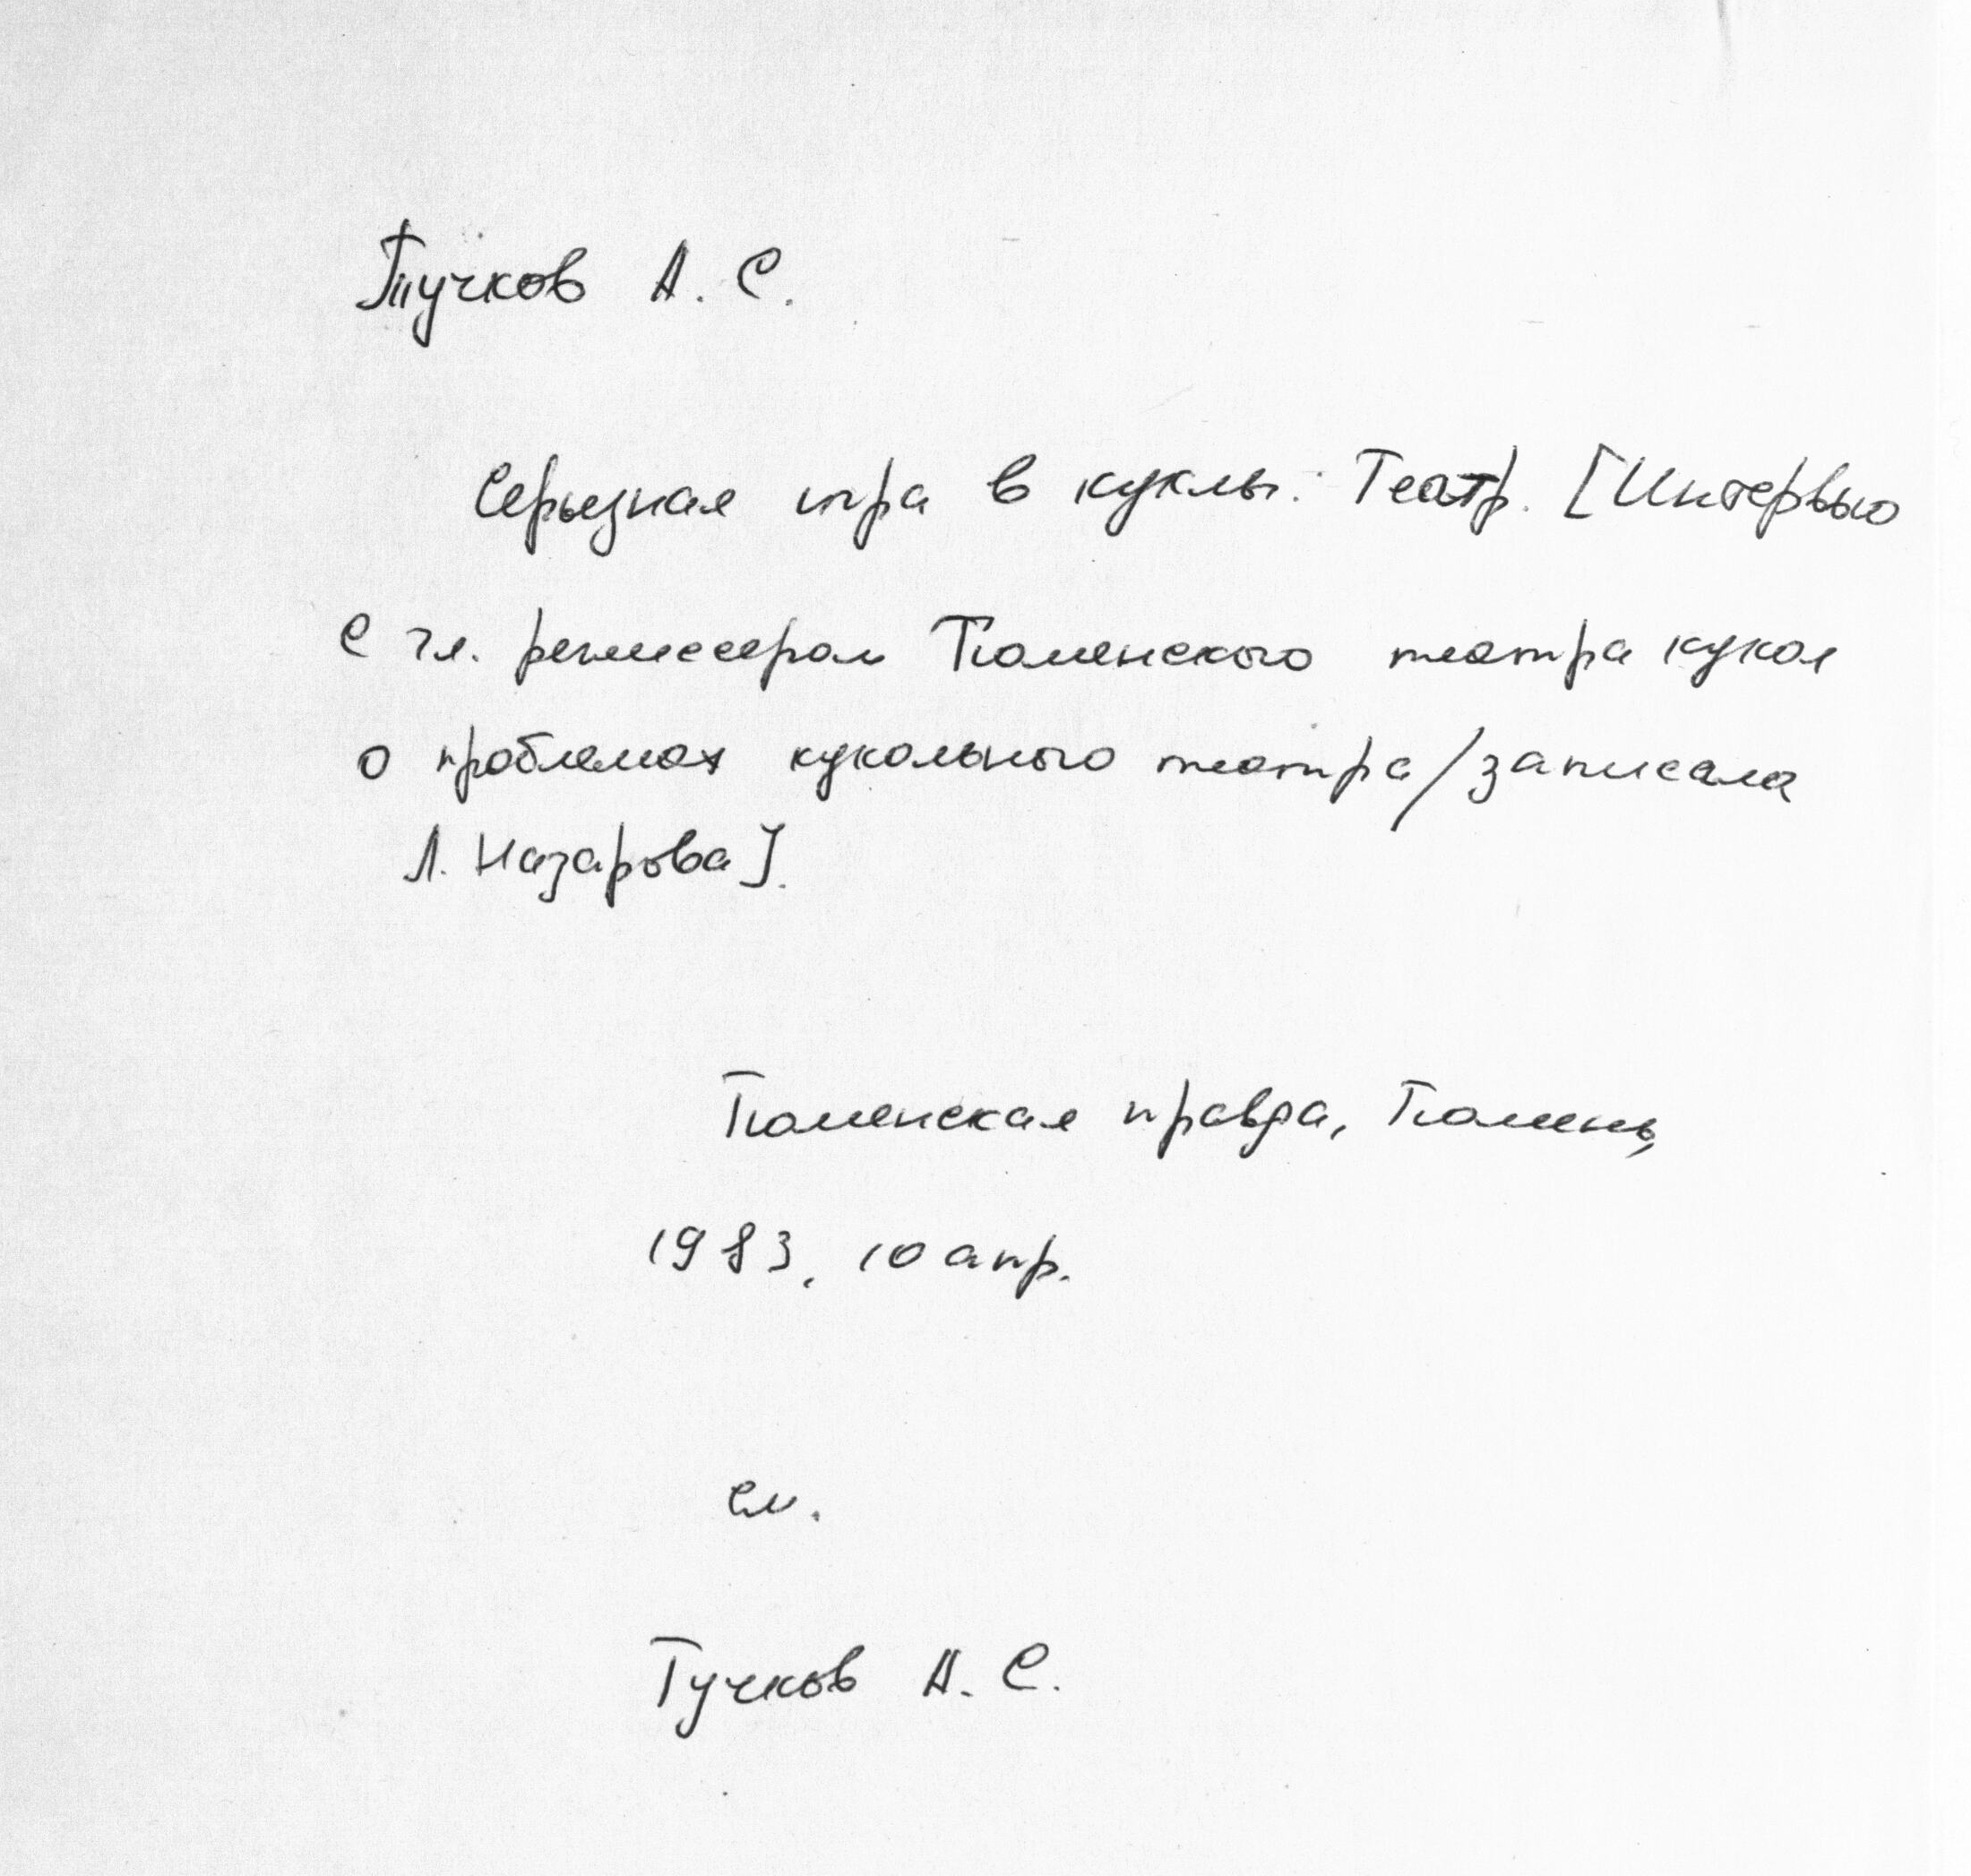 Тучков А. С.
Серьезная игра в куклы: Театр. [Интервью
с гл. режиссером Тюменского театра кукол
о проблемах кукольного театра/записала
Л. Назарова].
Тюменская правда, Тюмень,
1983, 10 апр.
см.
Тучков А. С.